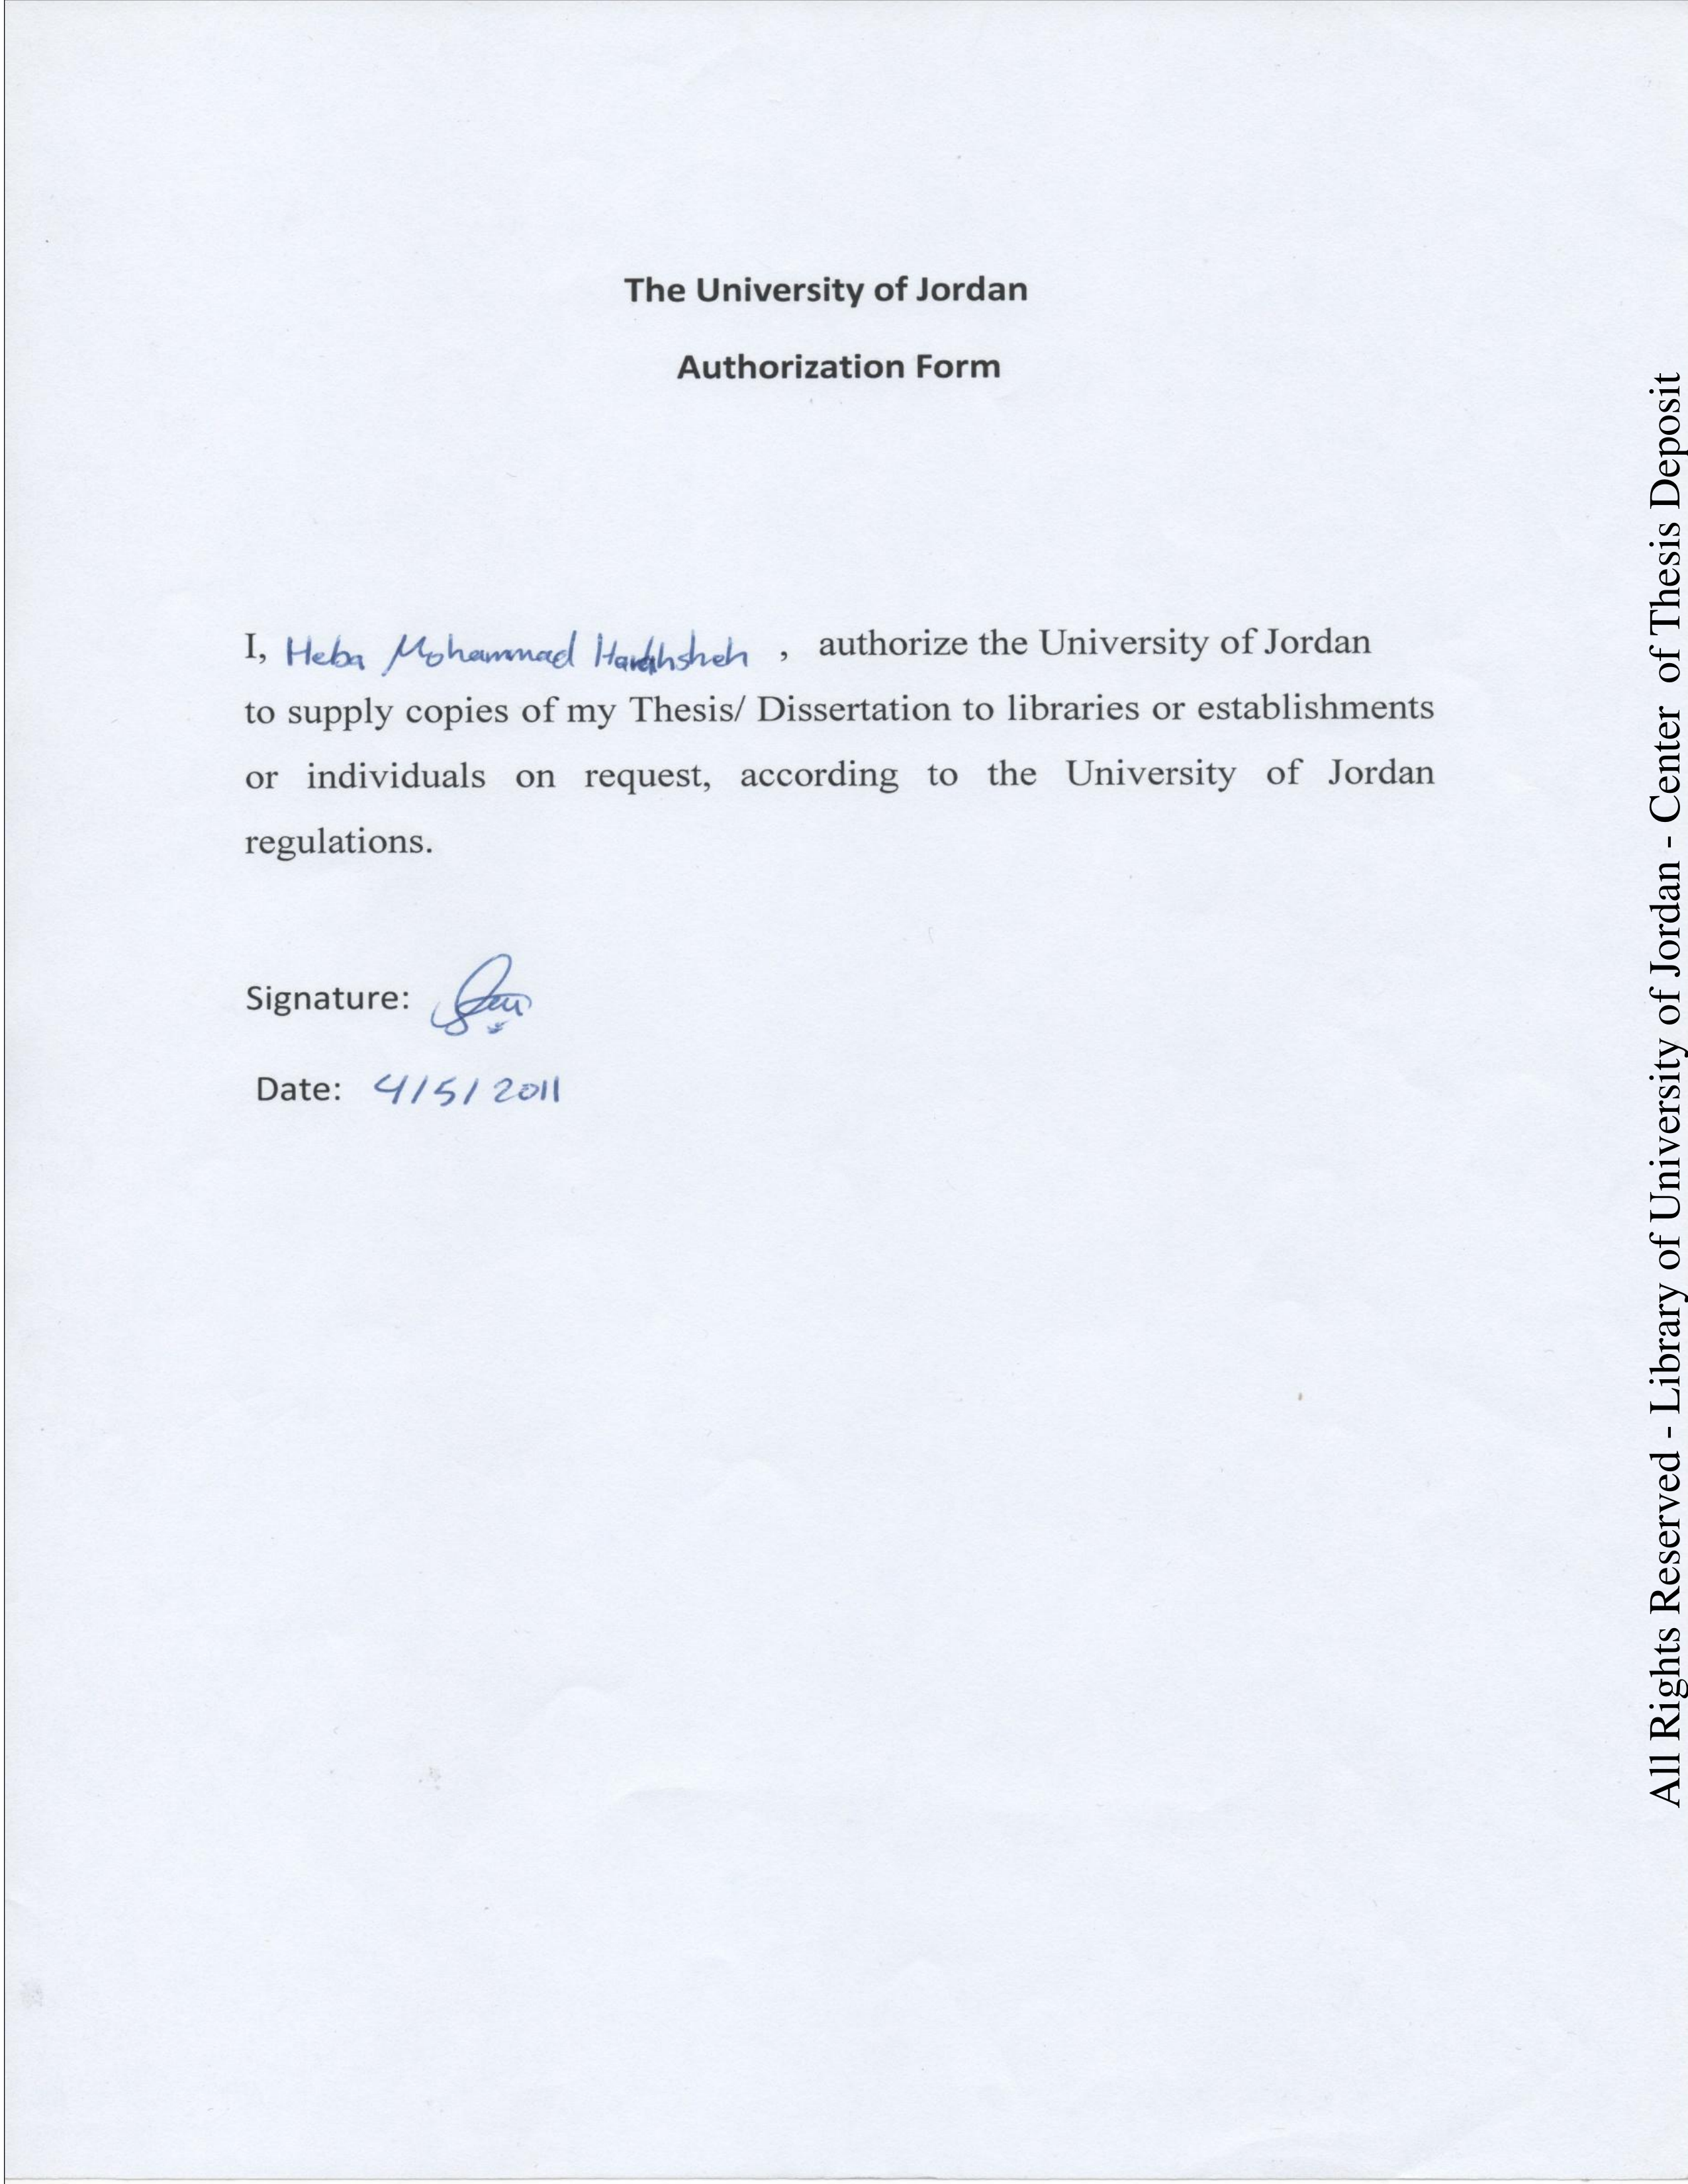 The University of Jordan
Authorization Form
I, Heba Mohammad Harahsheh , authorize the University of Jordan
to supply copies of my Thesis/ Dissertation to libraries or establishments
or individuals on request, according to the University of Jordan
regulations.
Signature:
Date: 4/5/2011
All Rights Reserved - Library of University of Jordan - Center of Thesis Deposit